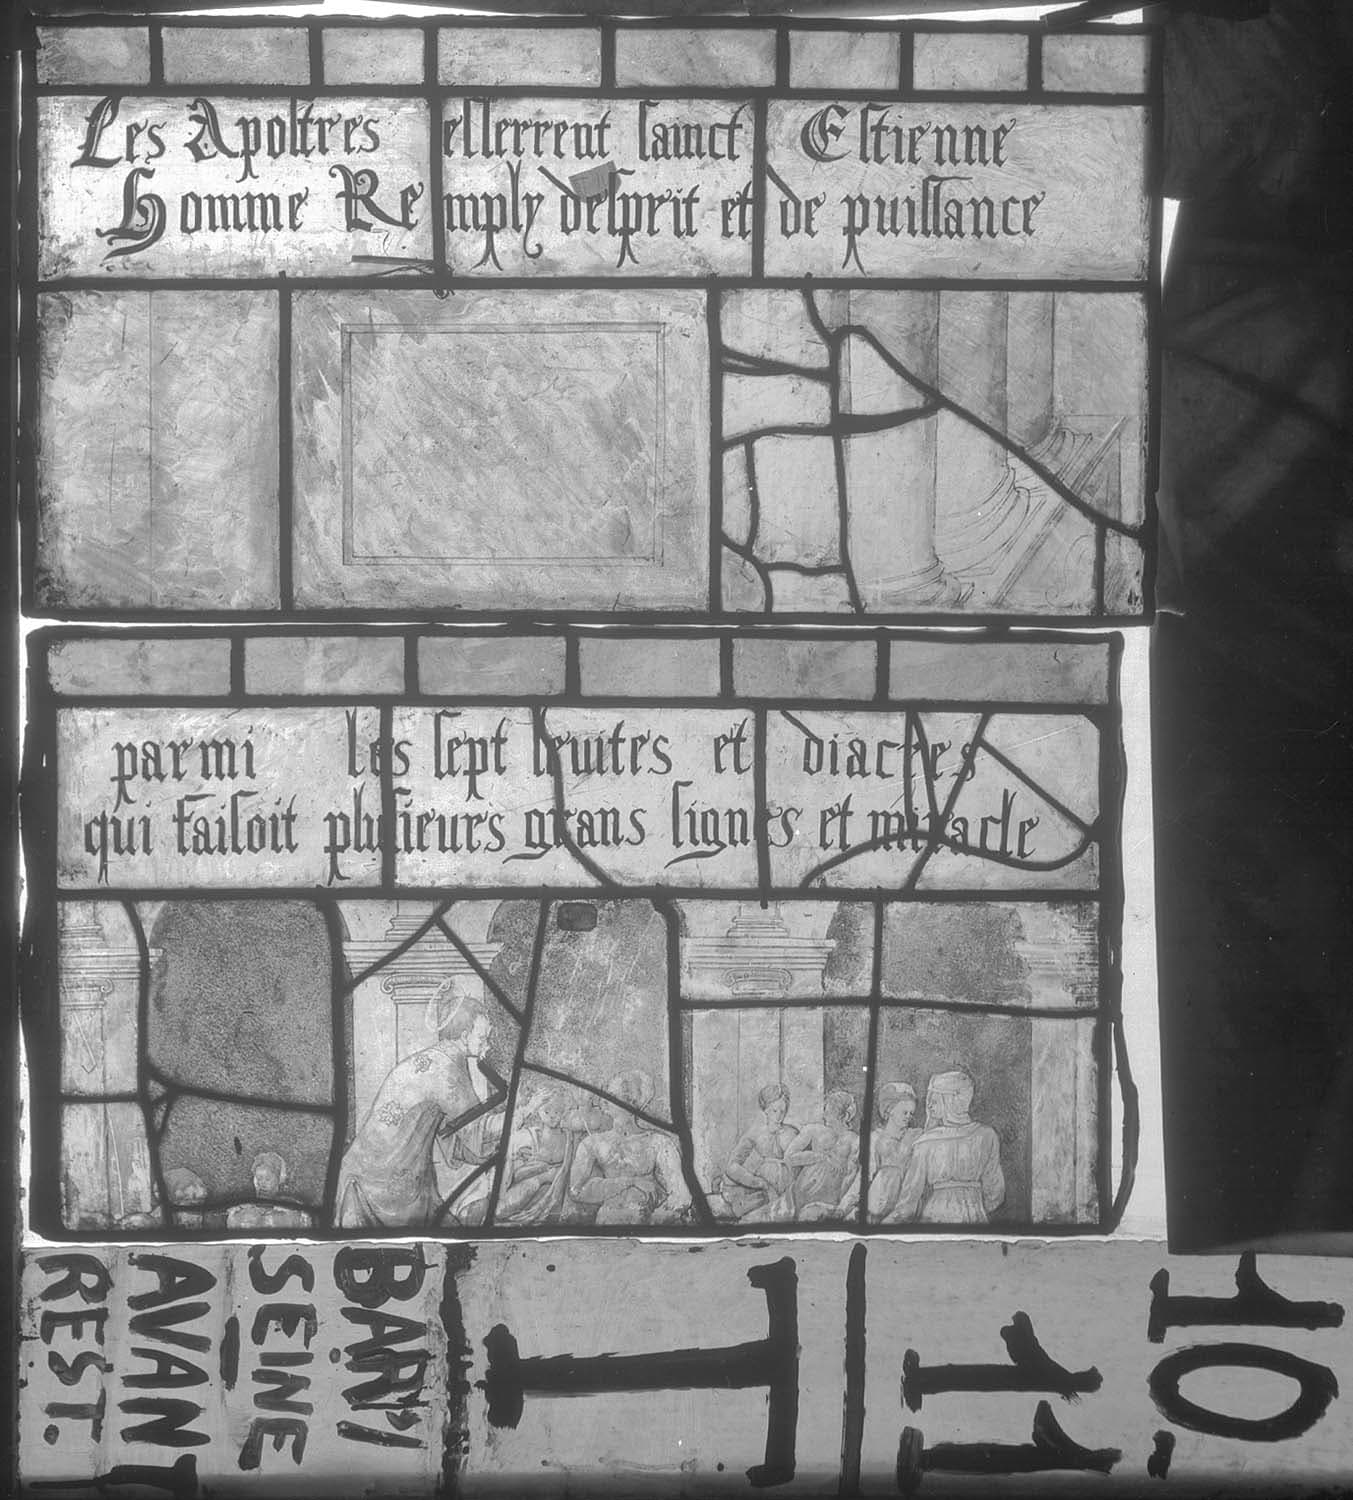 Les Apostres eslerrent sainct Estienne
Homme Remply desprit et de puissance
parmi les sept leuites et diacres
qui faisoit plusieurs grans signes et miracle
BAR/
SEINE
AVANT
REST.
I
11
10.